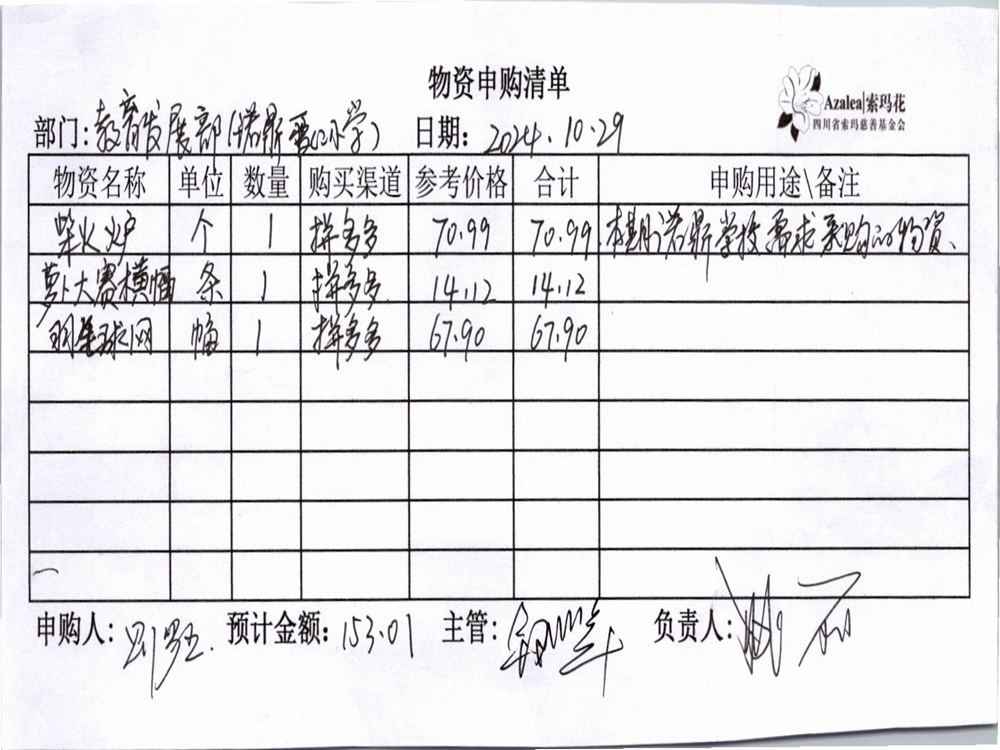 物资申购清单
Azalea|索玛花
四川省索玛慈善基金会
部门:教育发展部(小学) 日期: 2024.10.29
物资名称 单位 数量 购买渠道 参考价格 合计 申购用途\备注
柴火炉 个 1 拼多多 70.99 70.99 本期诺斯学校需求采购的物资、
萝卜大赛横幅 条 1 拼多多 14.12 14.12
羽毛球网 幅 1 拼多多 67.90 67.90
申购人: 预计金额: 153.01 主管: 负责人: